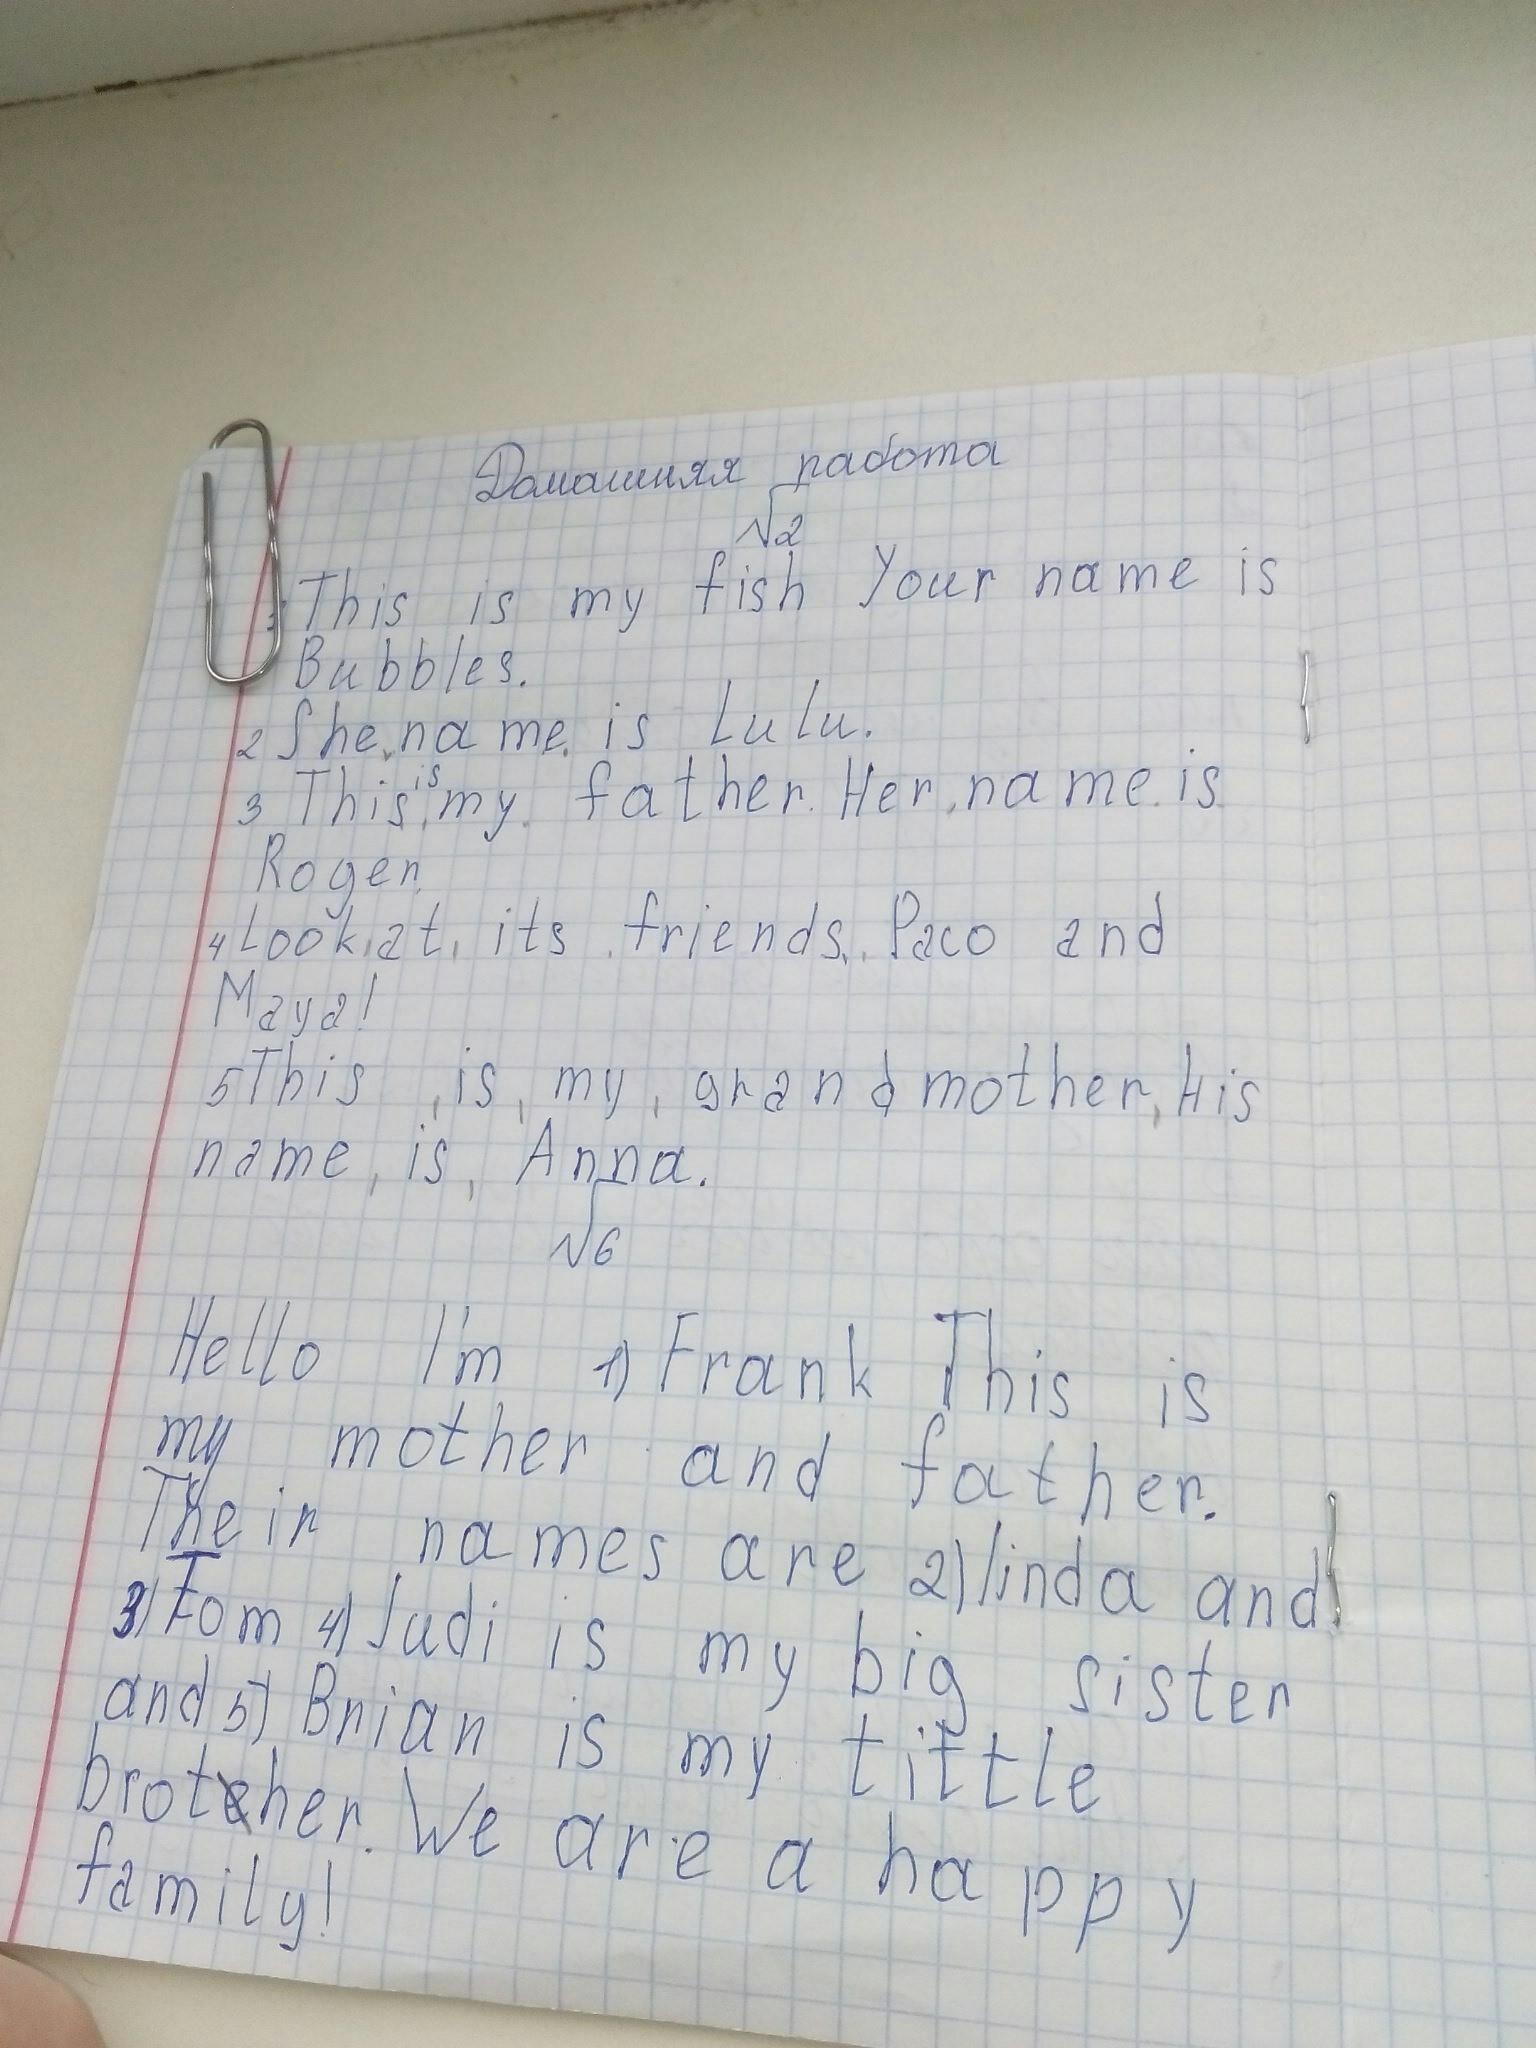 Домашняя работа
№2
1 This is my fish Your name is
Bubbles.
2 She name is Lulu.
3 This is my father. Her name is
Roger.
4 Look at its friends, Paco and
Maya!
5 This is my grandmother, His
name is Anna.
№6
Hello I'm 1) Frank This is
my mother and father.
Their names are 2) linda and
3) Tom 4) Judi is my big sister
and 5) Brian is my tittle
brother. We are a happy
family!